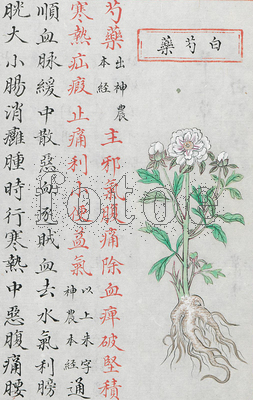 白芍藥
芍藥出神農本經主邪氣腹痛除血痺破堅積
寒熱疝瘕止痛利小便益氣以上朱字神農本經通
順血脈緩中散惡血逐賊血去水氣利膀
胱大小腸消癰腫時行寒熱中惡腹痛腰